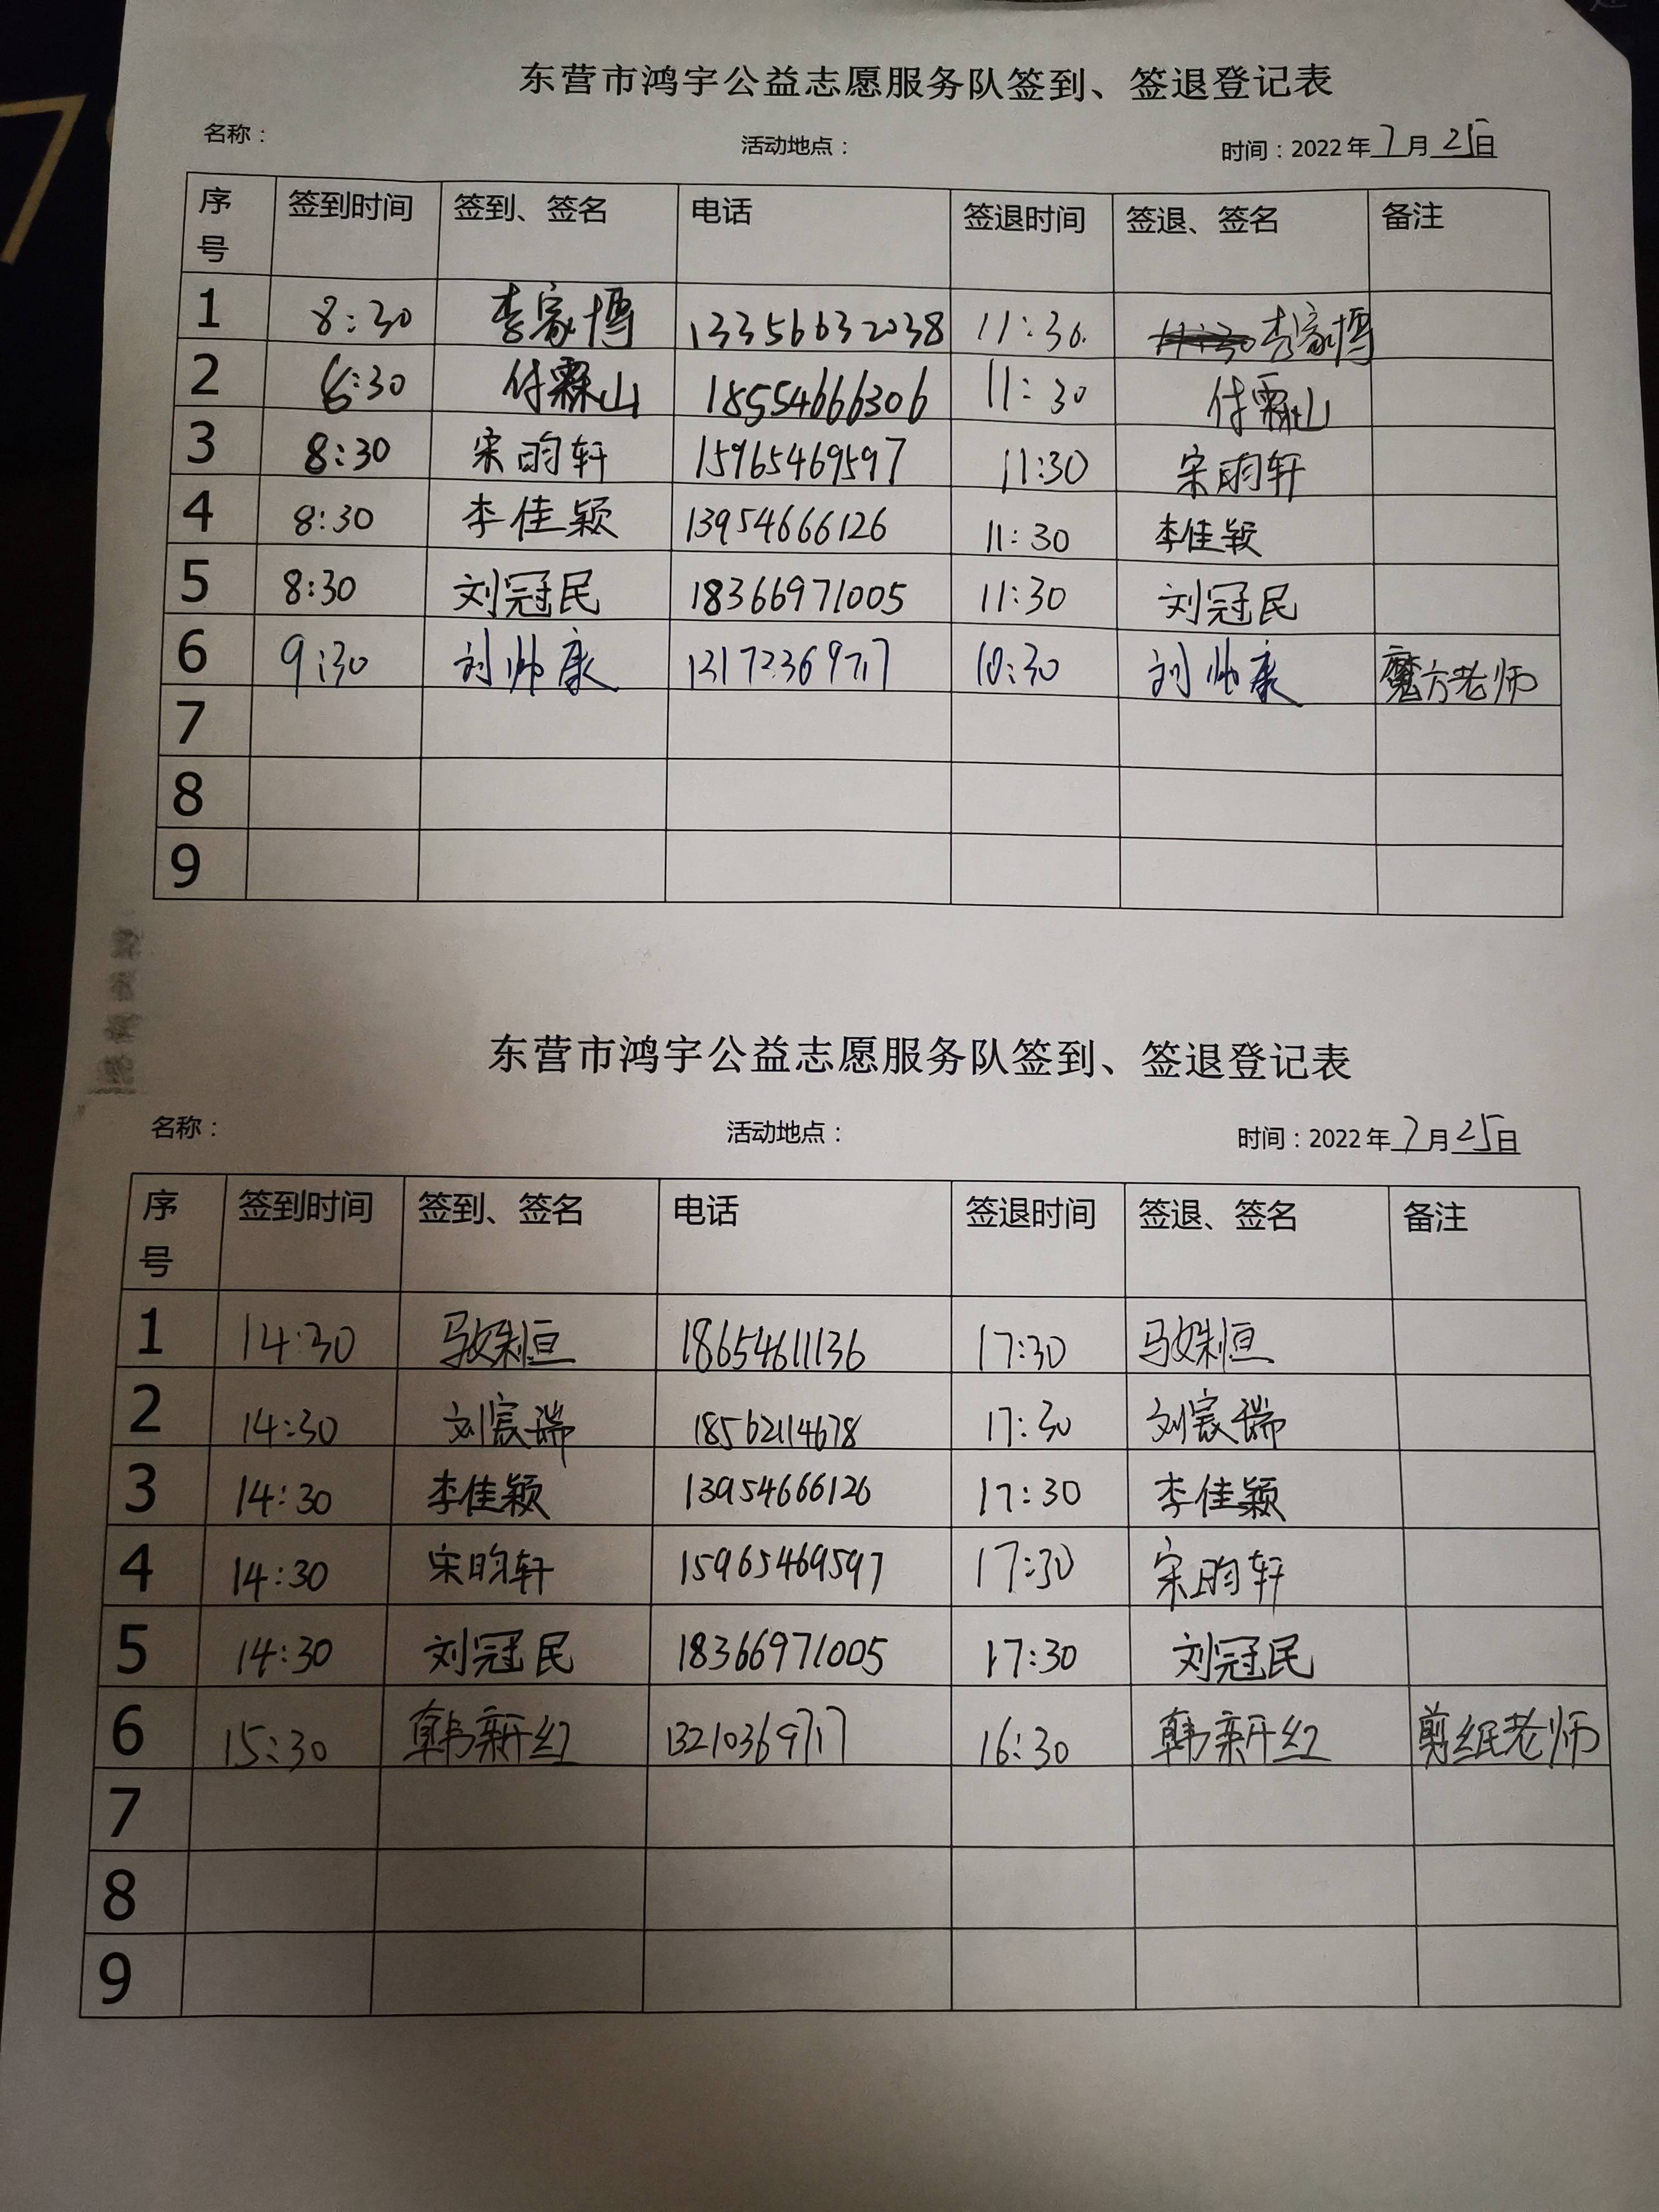 东营市鸿宇公益志愿服务队签到、签退登记表
名称： 活动地点： 时间：2022年7月25日
序号 签到时间 签到、签名 电话 签退时间 签退、签名 备注
1 8:30 李家博 13356632038 11:30. 李家博
2 8:30 付霖山 18554666306 11:30 付霖山
3 8:30 宋昀轩 15965469597 11:30 宋昀轩
4 8:30 李佳颖 13954666126 11:30 李佳颖
5 8:30 刘冠民 18366971005 11:30 刘冠民
6 9:30 刘帅康 10:30 刘帅康 魔方老师
7
8
9
东营市鸿宇公益志愿服务队签到、签退登记表
名称： 活动地点： 时间：2022年7月25日
序号 签到时间 签到、签名 电话 签退时间 签退、签名 备注
1 14:30 18654611136 17:30
2 14:30 刘宸瑞 18562114678 17:30 刘宸瑞
3 14:30 李佳颖 13954666126 17:30 李佳颖
4 14:30 宋昀轩 15965469597 17:30 宋昀轩
5 14:30 刘冠民 18366971005 17:30 刘冠民
6 15:30 韩新红 13210369717 16:30 韩新红 剪纸老师
7
8
9